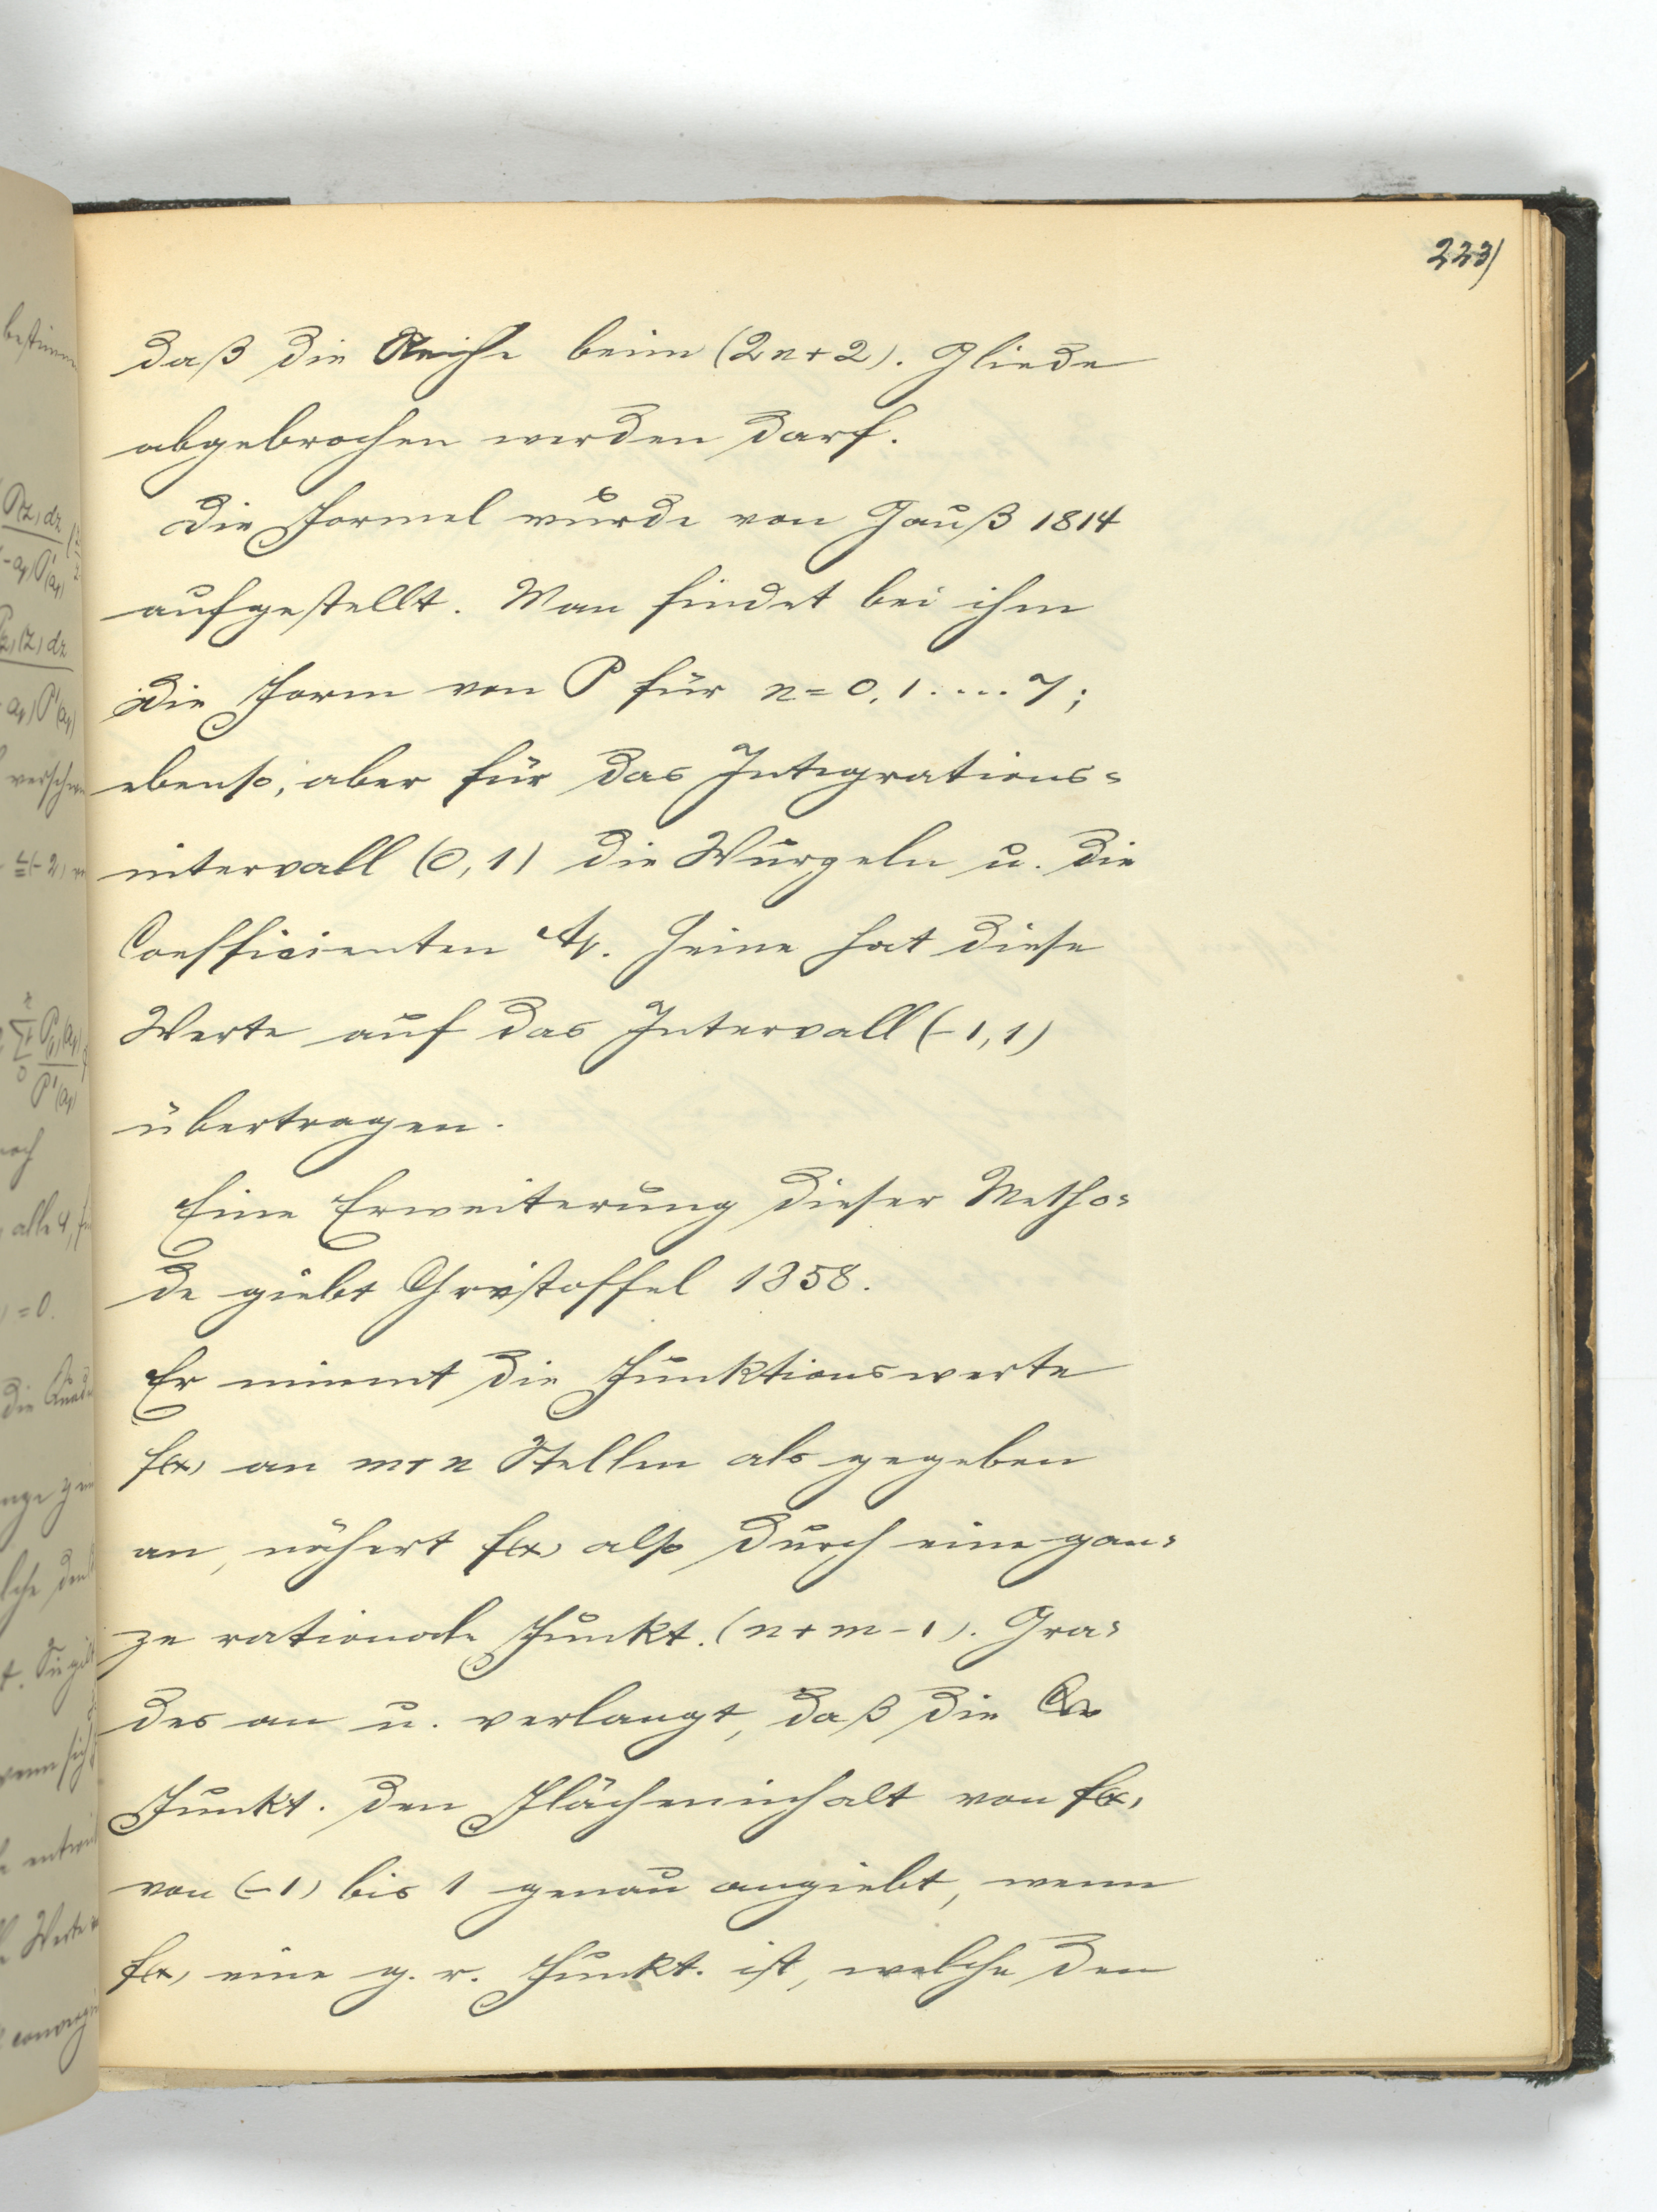 223)
daß die Reihe beim (2n+2). Gliede
abgebrochen werden darf.
Die Formel wurde von Gauß 1814
aufgestellt. Man findet bei ihm
die Form von P für n=0,1....7;
ebenso, aber für das Integrations-
intervall (0,1) die Wurzeln u. die
Coefficienten Aν. Heine hat diese
Werte auf das Intervall (-1,1)
übertragen.
Eine Erweiterung dieser Metho-
de giebt Christoffel 1858.
Er nimmt die Funktionswerte
f(x) an m+n Stellen als gegeben
an, nähert f(x) also durch eine gan-
ze rationale Funkt. (n+m-1). Gra-
des an u. verlangt, daß die
Funkt. den Flächeninhalt von f(x)
von (-1) bis 1 genau angiebt, wenn
f(x) eine g. r. Funkt. ist, welche den